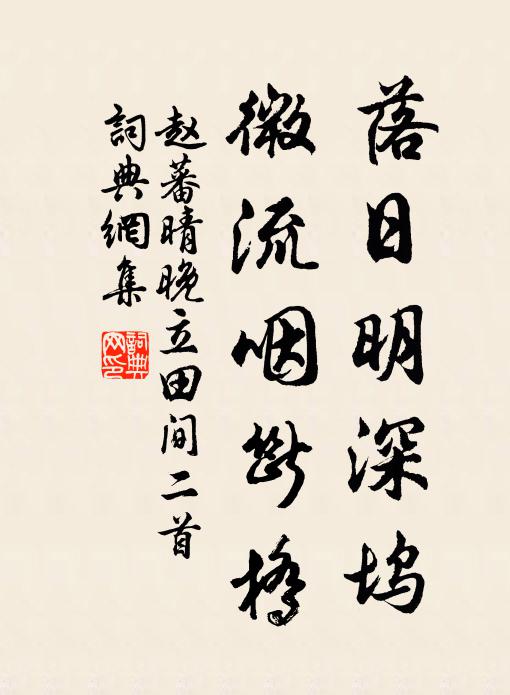 落日明深坞
微流咽断橋
赵蕃晴晚立田间二首
詞典網集
詞典
网印